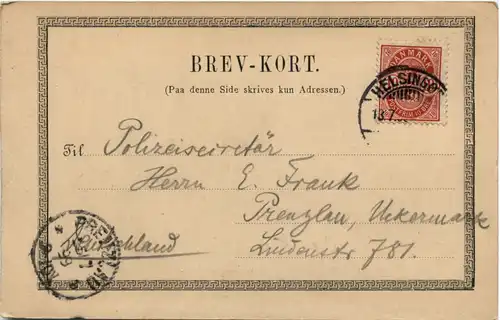 BREV-KORT.
(Paa denne Side skrives kun Adressen.)
DANMARK
HELSINGØR
Til Polizeisecretär
Herrn E. Frank
Prenzlau, Uckermark
Deutschland Lindenstr 781.
PRENZLAU